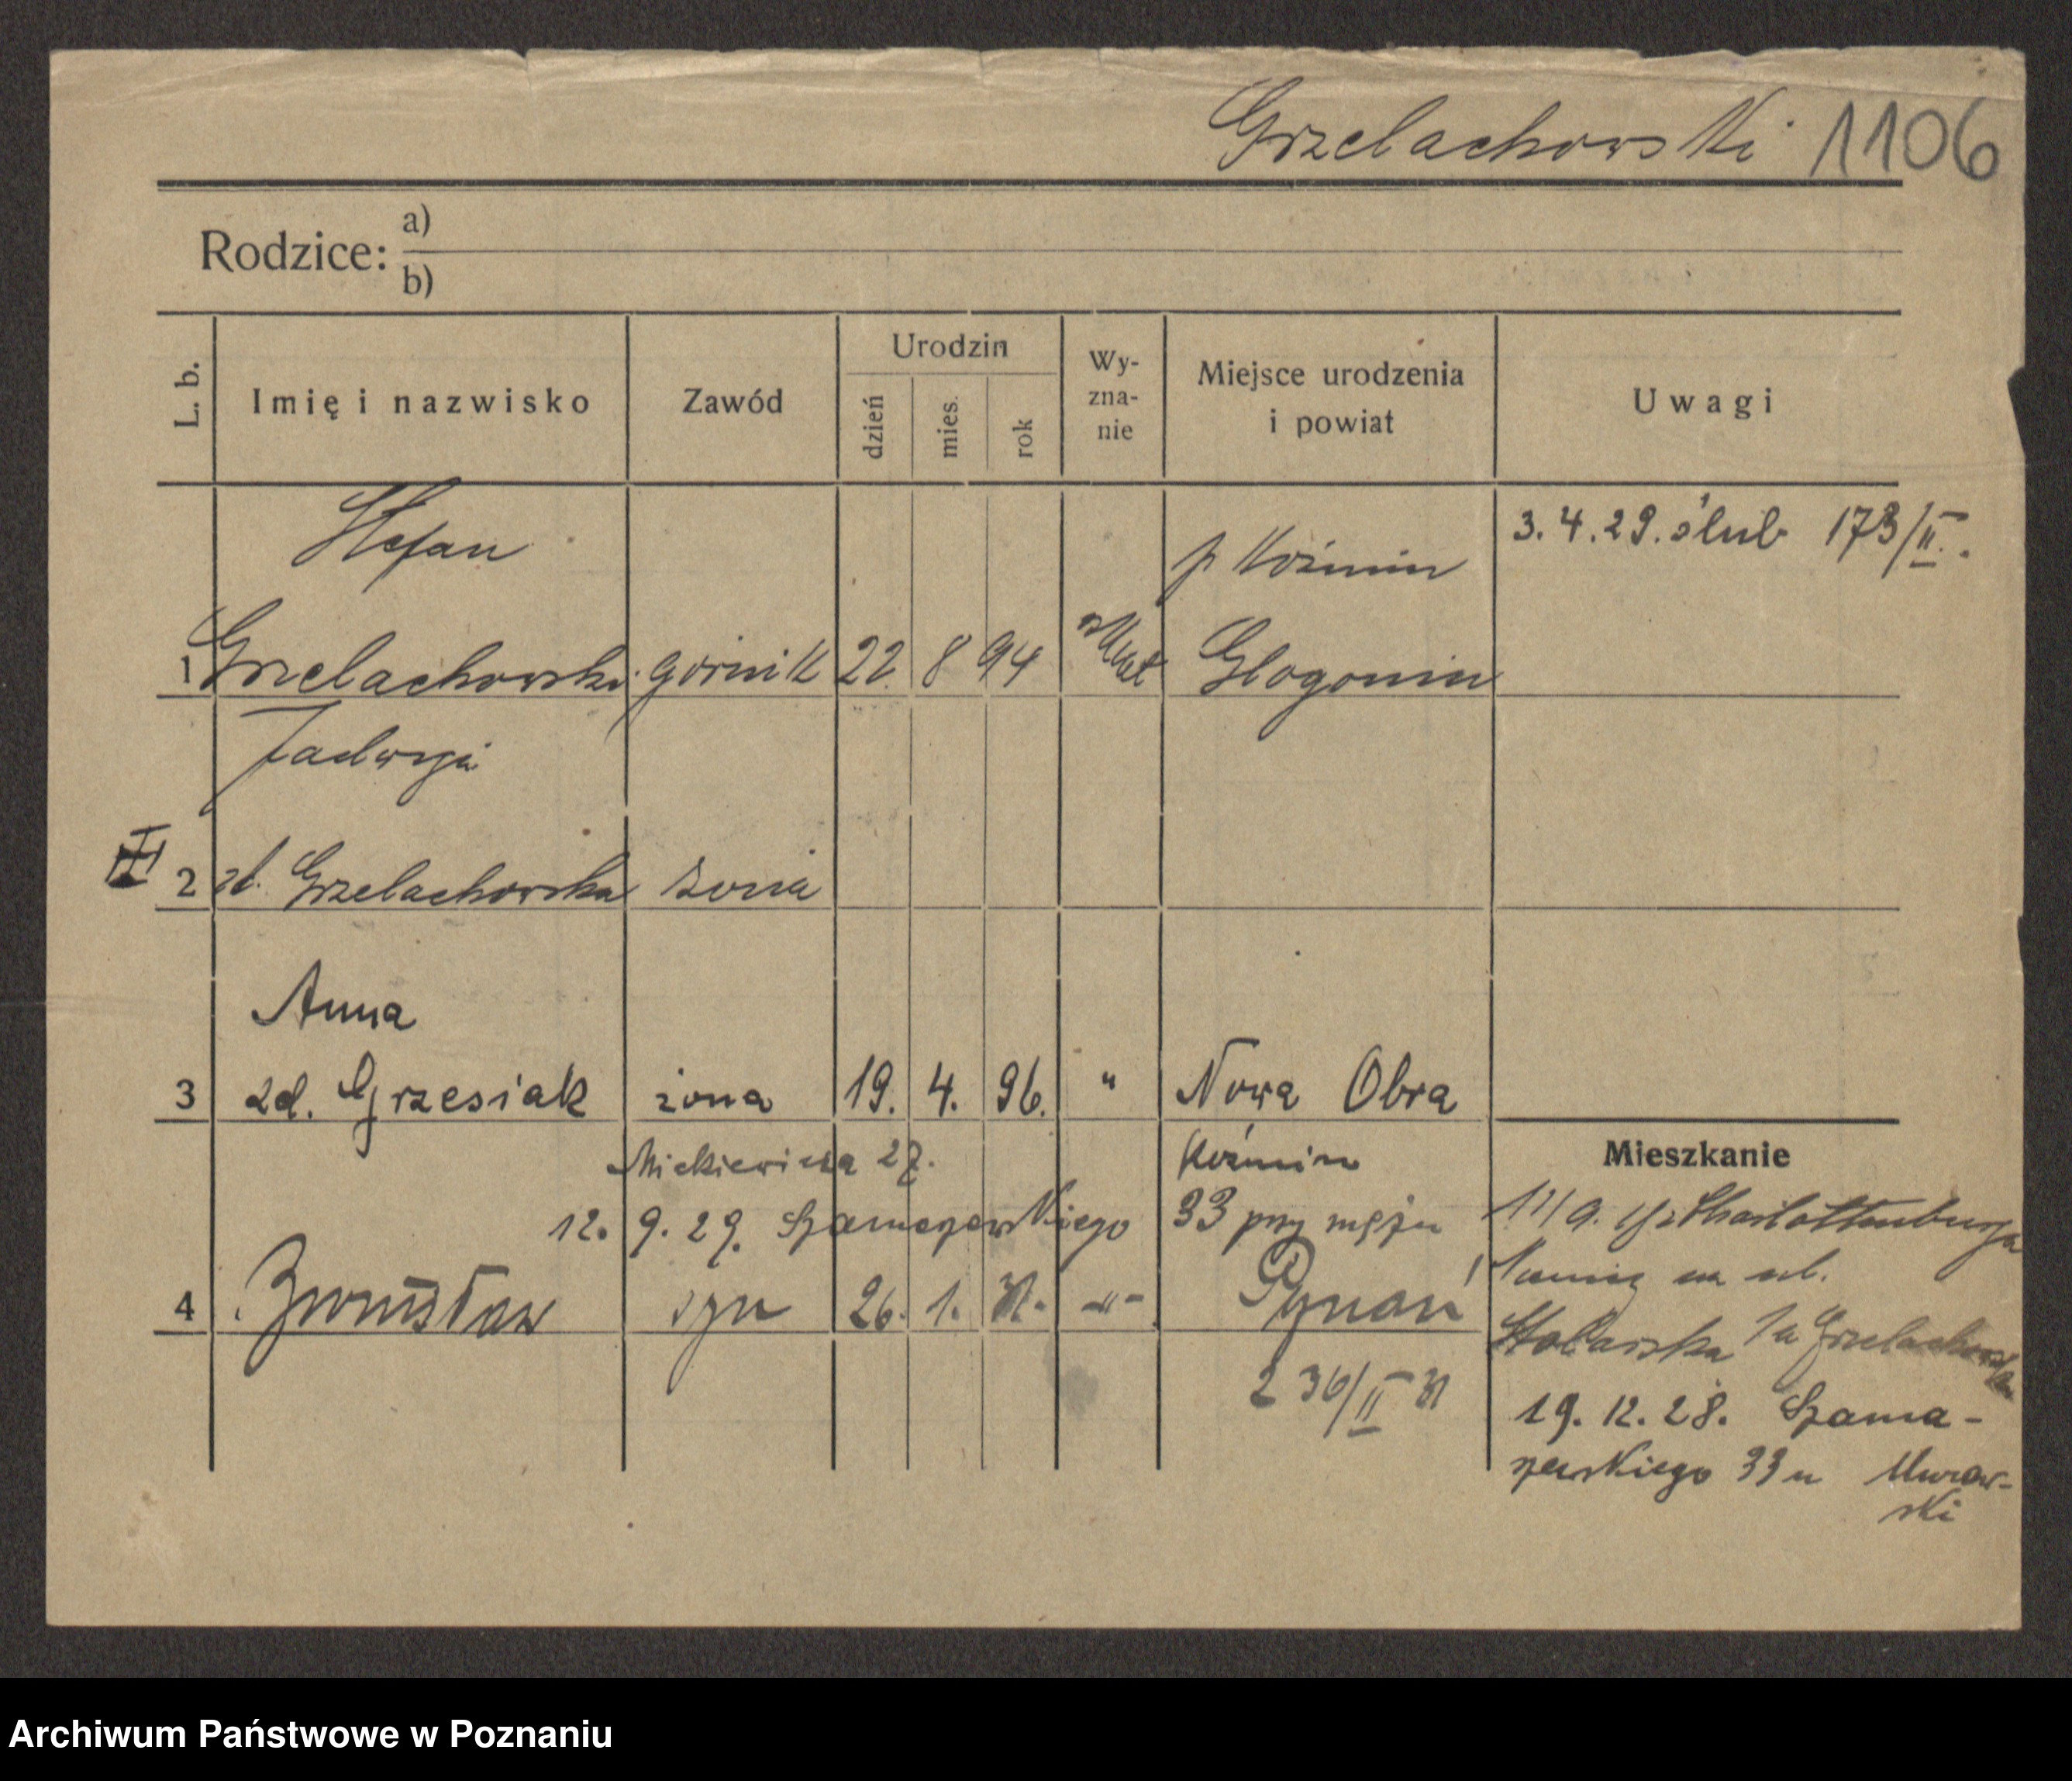 Grzelachowski 1106
Rodzice: a)
b)
L. b.
Imię i nazwisko
Zawód
Urodzin
dzień
mies.
rok
Wy-
zna-
nie
Miejsce urodzenia
i powiat
Uwagi
Stefan
p Koźmin
3. 4. 29. ślub 173/II.
1 Grzelachowski górnik 22. 8 94 Głogonin
Jadwiga
2 zd. Grzelachowska żona
Anna
3 zd. Grzesiak żona 19. 4. 96. " Nowa Obra
Mieszkanie
Mickiewicza 27. Koźmin
12. 9. 29. Szamarzewskiego 33 przy mężu
4 Bronisław syn 26. 1. 31. -"- Poznań
236/II 31
17/9. z Charlottenburga
na ul.
Stolarska 1a Grzelachowska
19. 12. 28. Szama-
rzewskiego 33 u Muraw-
ski
Archiwum Państwowe w Poznaniu